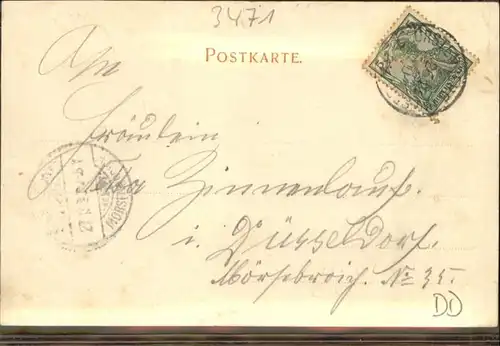 3471
POSTKARTE.
An
Fräulein
Zinnenlauf.
i. Düsseldorf.
Mörsebroich. No 35.
DO